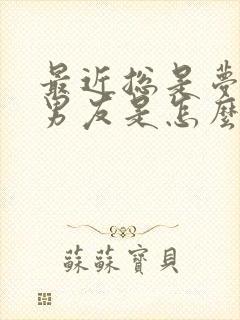 最近总是夢
男友是怎麼
蘇蘇寶貝